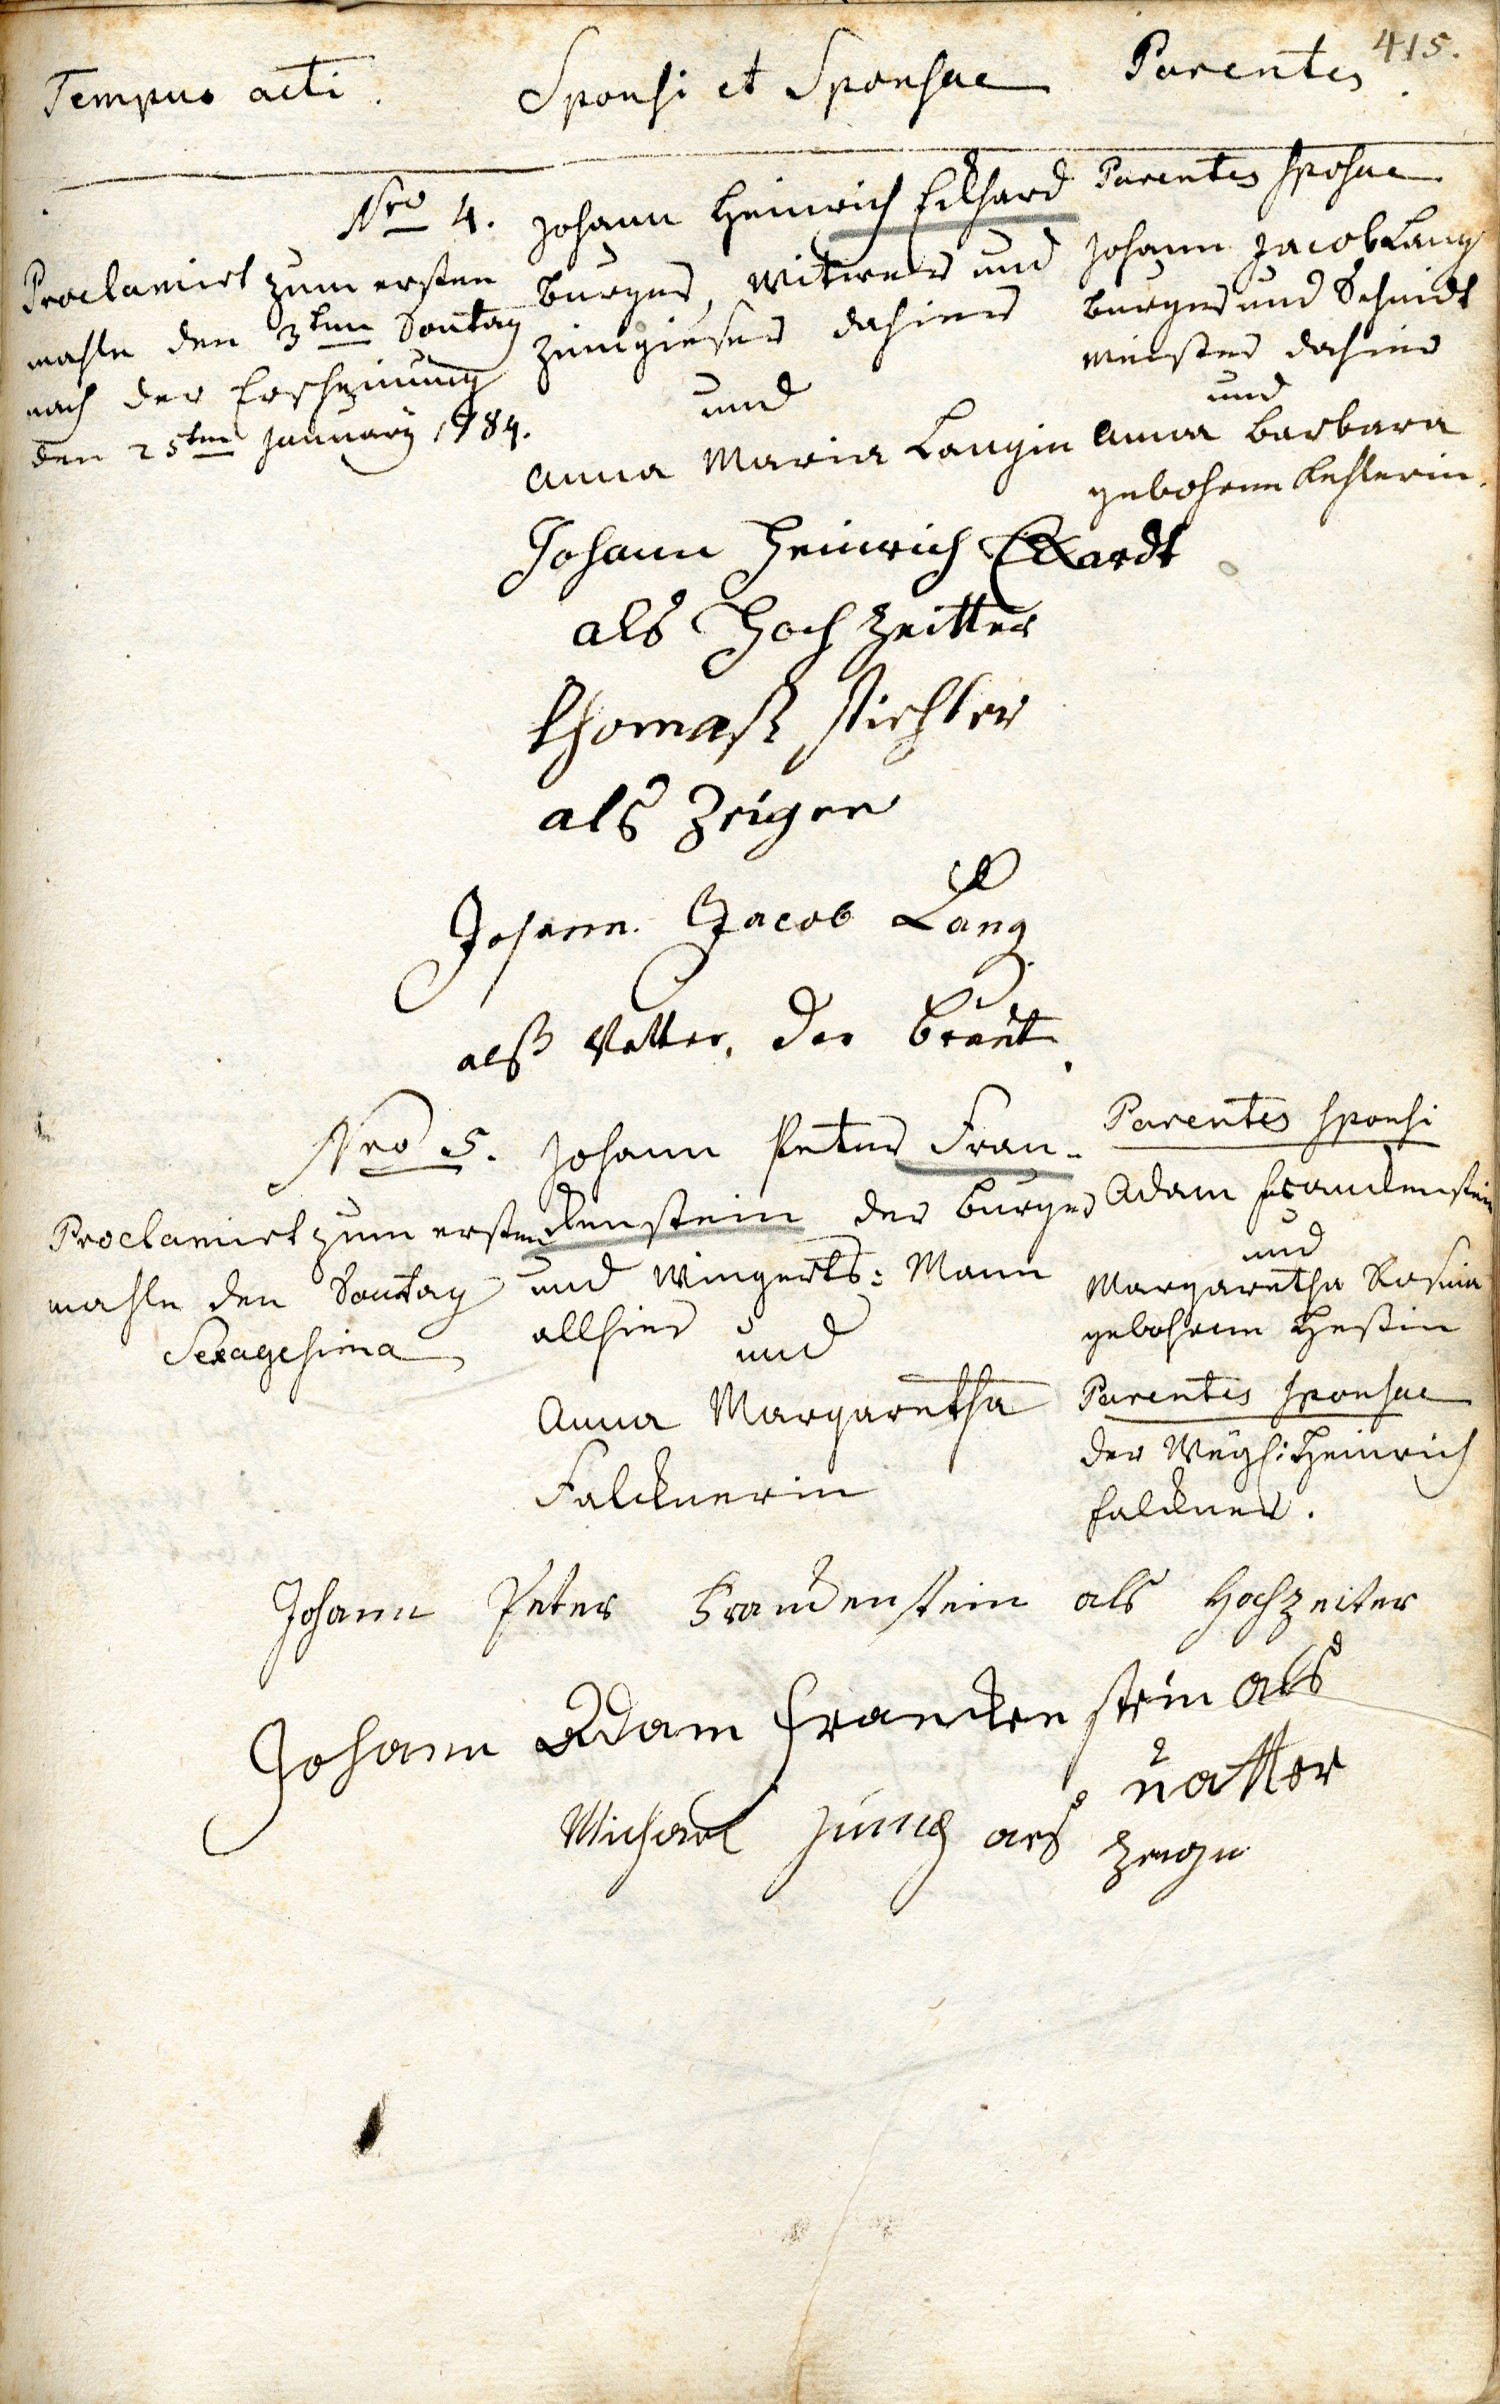 415.
Tempus acti.
Sponsi et Sponsae
Parentes
Nro 4.
Proclamirt zum ersten
mahle den 3ten Sontag
nach der Erscheinung
den 25ten January 1784.
Johann Heinrich Eckhard
burger, Witwer und
Zinngieser dahier
und
Anna Maria Langin
Parentes sposae
Johann Jacob Lang
burger und Schmidt
meister dahier
und
Anna Barbara
gebohrne Kehlerin.
Johann Heinrich Eckardt
als Hoch Zeitter
Thomaß Stichler
als Zeigen
Johann. Jacob Lang
alß Vatter, der braut.
Nro 5.
Proclamirt zum ersten
mahle den Sontag
Sexagesima
Johann Peter Fran-
ckenstein der burger
und Wingerts: Mann
allhier
und
Anna Margaretha
Falcknerin
Parentes sponsi
Adam Franckenstein
und
Margaretha Rosina
gebohrne Heßin
Parentes sponsae
der Heinrich
Falckner.
Johann Peter Franckenstein als Hochzeiter
Johann Adam Francken stein als
vatter
Michael als Zeuge